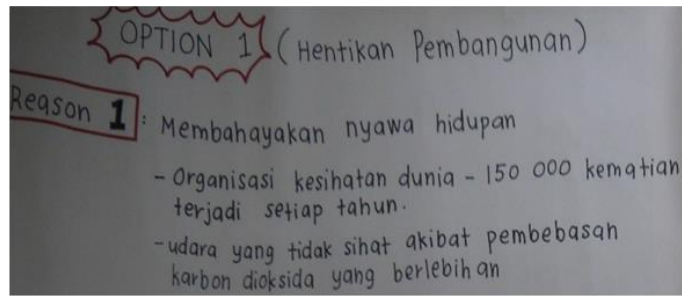 OPTION 1 (Hentikan Pembangunan)
Reason 1 : Membahayakan nyawa hidupan
- Organisasi kesihatan dunia - 150 000 kematian
terjadi setiap tahun.
- udara yang tidak sihat akibat pembebasan
karbon dioksida yang berlebihan